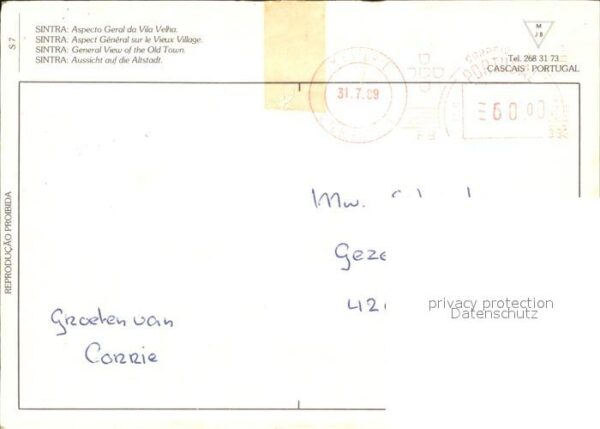 SINTRA: Aspecto Geral da Vila Velha.
SINTRA: Aspect Général sur le Vieux Village.
SINTRA: General View of the Old Town.
SINTRA: Aussicht auf die Altstadt.
S 7
M
J B
Tel. 268 31 73
CASCAIS - PORTUGAL
31.7.89
CORREIO
PORTUGAL
60.00
REPRODUÇÃO PROIBIDA
Mw.
Geze
42
Groeten van
Corrie
privacy protection
Datenschutz